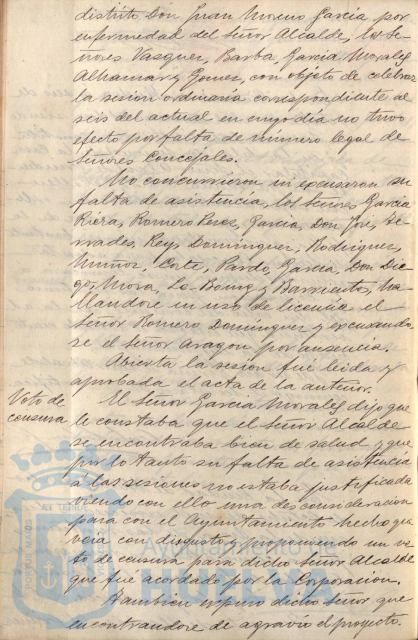 distrito Don Juan Moreno García por
enfermedad del Señor Alcalde, los Se-
ñores Vasquez, Barba, Garcia Morales
Alhamar y Gomez, con objeto de celebrar
la sesion ordinaria correspondiente al
seis del actual en cuyo dia no tuvo
efecto por falta de número legal de
Señores Concejales.
No concurrieron ni excusaron su
falta de asistencia, los Señores Garcia
Riera, Romero Perez, Garcia, Don José, Se-
rrades, Rey, Dominguez, Rodriguez,
Muñoz, Corte, Pardo, Garcia, Don Die-
go, Mora, Lo-Bou y Barriento, ha-
llandose en uso de licencia el
Señor Romero Dominguez y excusando-
se el Señor Aragon por ausencia.
Abierta la sesion fué leida y
aprobada el acta de la anterior.
Voto de
censura
El Señor Garcia Morales dijo que
le constaba que el Señor Alcalde
se encontraba bien de salud y que
por lo tanto su falta de asistencia
á las sesiones no estaba justificada
viendo con ello una desconsideracion
para con el Ayuntamiento hecho que
veia con disgusto y proponiendo un vo-
to de censura para dicho Señor Alcalde
que fué acordado por la Corporacion.
Tambien expuso dicho Señor que
encontrandose de agravio el proyecto
Ayuntamiento de
HUELVA